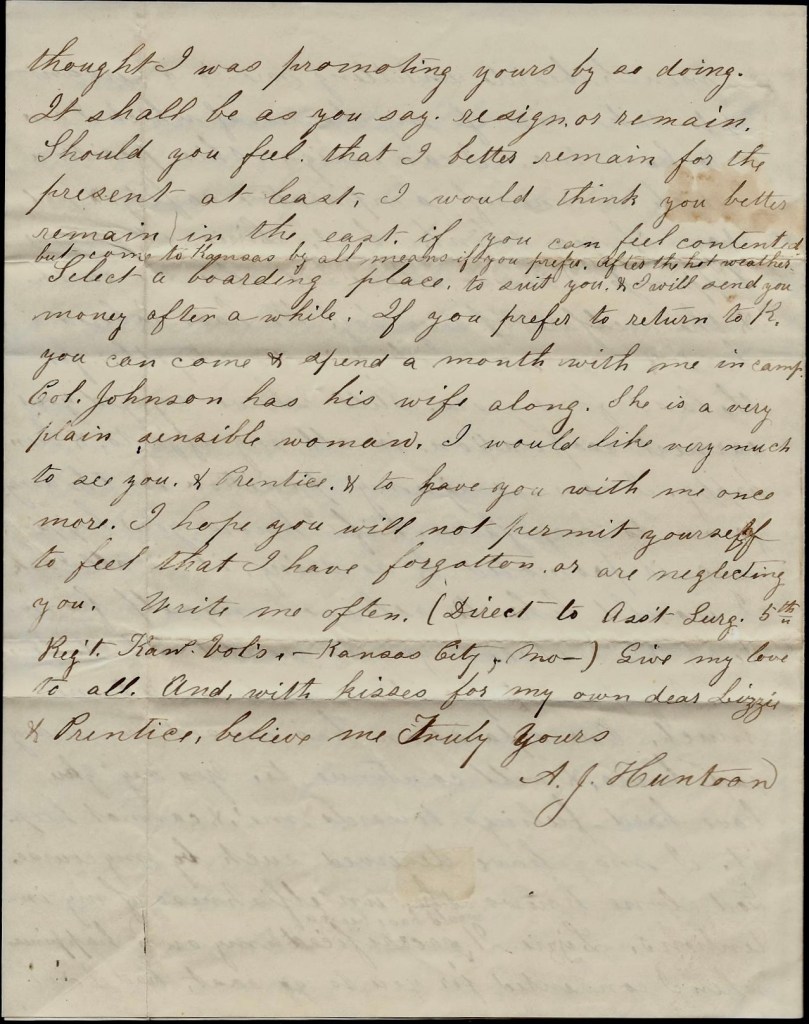 thought I was promoting yours by so doing.
It shall be as you say. resign. or remain.
Should you feel. that I better remain for the
present at least, I would think you better
remain in the east. if you can feel contented
but come to Kansas by all means if you prefer. after the hot weather.
Select a boarding place. to suit you. & I will send you
money after a while. If you prefer to return to K.
you can come & spend a month with me in camp.
Col. Johnson has his wife along. She is a very
plain sensible woman. I would like very much
to see you. & Prentice. & to have you with me once
more. I hope you will not permit yourself
to feel that I have forgotton. or are neglecting
you. Write me often. (Direct to Ass't Surg. 5th
Reg't. Kan. Vol's. - Kansas City, Mo-) Give my love
to all. And, with kisses for my own dear Lizzie
& Prentice, believe me Truly Yours
A. J. Huntoon